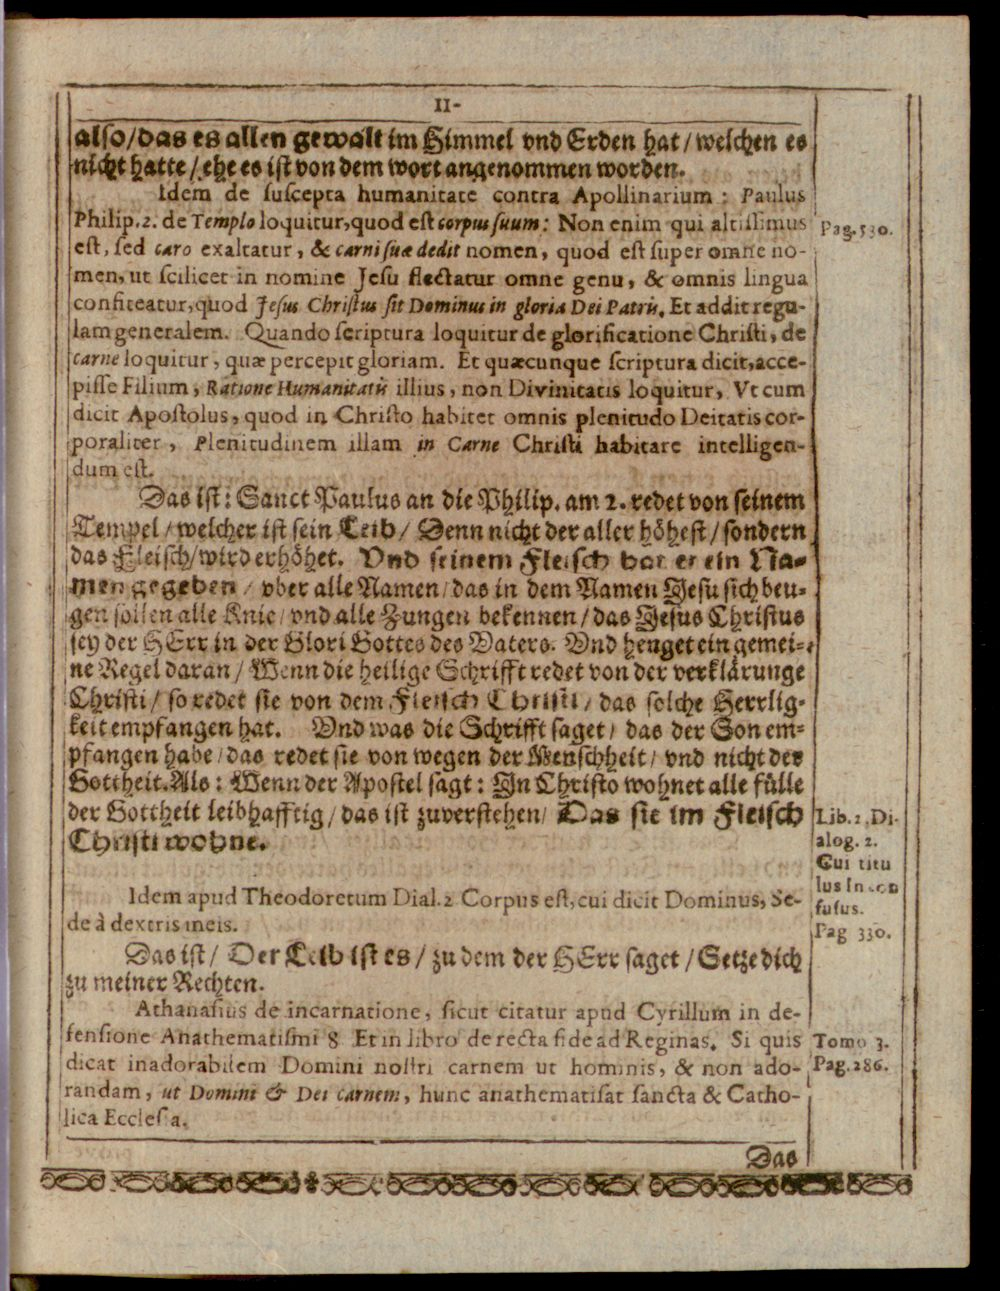 11-
also/das es allen gewalt im Himmel vnd Erden hat / welchen es
nicht hatte / ehe es ist von dem wort angenommen worden.
Idem de suscepta humanitate contra Apollinarium : Paulus
Philip.2. de Templo loquitur,quod est corpus suum: Non enim qui altissimus
Pag.530.
est, sed caro exaltatur, & carni suæ dedit nomen, quod est super omne no-
men, ut scilicet in nomine Jesu flectatur omne genu, & omnis lingua
confiteatur, quod Jesus Christus sit Dominus in gloria Dei Patris. Et addit regu-
lam generalem. Quando scriptura loquitur de glorificatione Christi, de
carne loquitur, quæ percepit gloriam. Et quæcunque scriptura dicit,acce-
pisse Filium, Ratione Humanitatis illius, non Divinitatis loquitur, Vt cum
dicit Apostolus, quod in Christo habitet omnis plenitudo Deitatis cor-
poraliter, Plenitudinem illam in Carne Christi habitare intelligen-
dum est.
Das ist: Sanct Paulus an die Philip. am 2. redet von seinem
Tempel / welcher ist sein Leib / Denn nicht der aller höhest / sondern
das Fleisch/wird erhöhet. Vnd seinem Fleisch hat er ein Na-
men gegeben / vber alle Namen / das in dem Namen Jesu sich beu-
gen sollen alle Knie / vnd alle Zungen bekennen / das Jesus Christus
sey der HErr in der Glori Gottes des Vaters. Vnd henget ein gemei-
ne Regel daran / Wenn die heilige Schrifft redet von der verklärunge
Christi / so redet sie von dem Fleisch Christi / das solche Herrlig-
keit empfangen hat. Vnd was die Schrifft saget / das der Son em-
pfangen habe / das redet sie von wegen der Menschheit / vnd nicht der
Gottheit. Als: Wenn der Apostel sagt: In Christo wohnet alle fülle
der Gottheit leibhafftig / das ist zuverstehen / Das sie im Fleisch
Christi wohne.
Lib.2.Di-
alog. 2.
Cui titu
lus Incon
fusus.
Pag 330.
Idem apud Theodoretum Dial.2 Corpus est, cui dicit Dominus, Se-
de à dextris meis.
Das ist / Der Leib ist es / zu dem der HErr saget / Setze dich
zu meiner Rechten.
Athanasius de incarnatione, sicut citatur apud Cyrillum in de-
fensione Anathematismi 8 Et in libro de recta fide ad Reginas. Si quis
Tomo 3.
Pag.286.
dicat inadorabilem Domini nostri carnem ut hominis, & non ado-
randam, ut Domini & Dei carnem, hunc anathematisat sancta & Catho-
lica Ecclesia.
Das